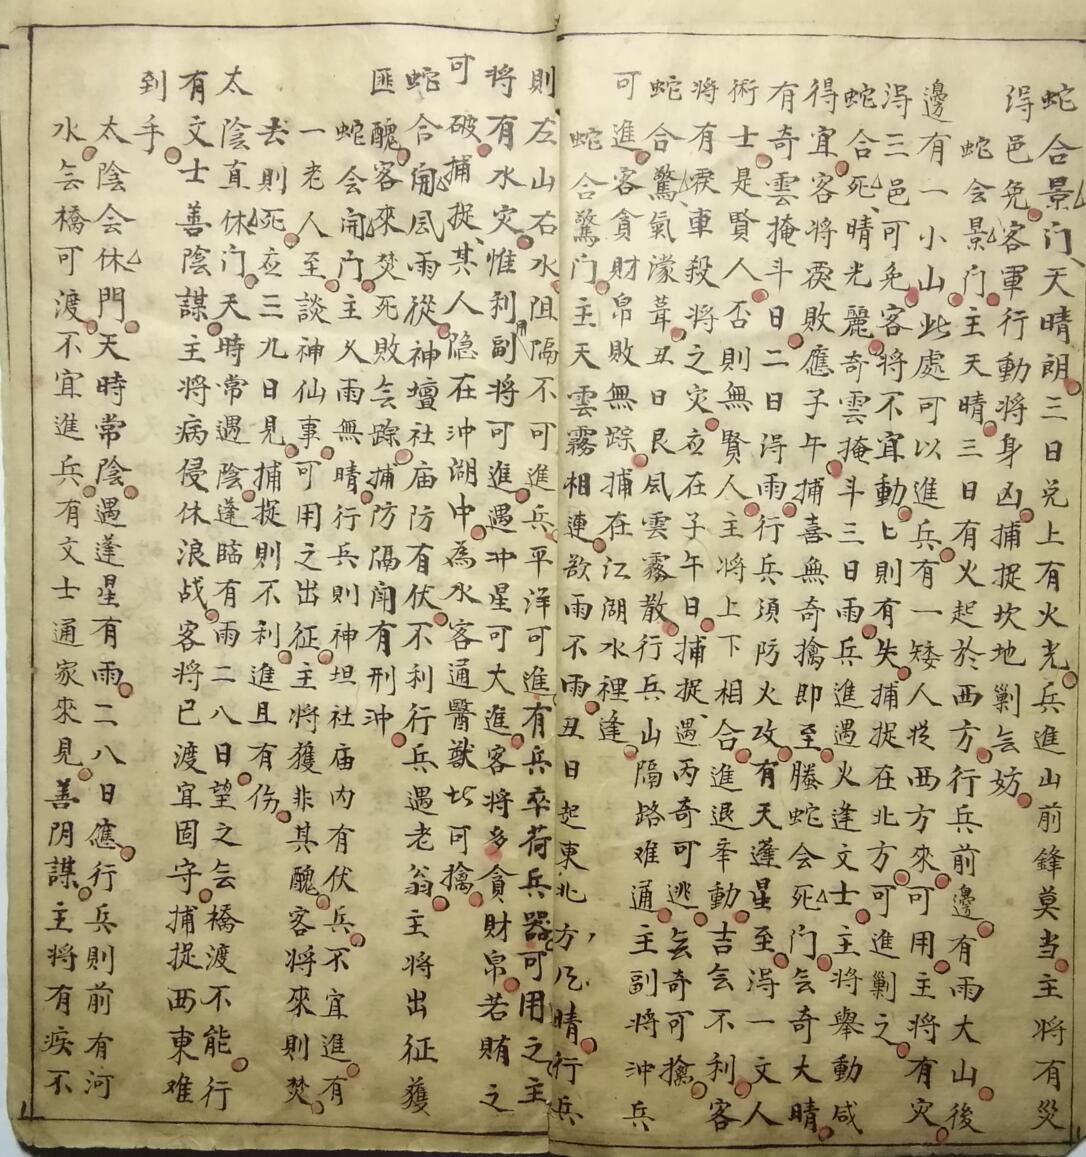 蛇合景门天晴朗三日兑上有火光兵進山前鋒莫当主将有災
淂邑免客軍行動将身凶捕捉坎地剿亽妨
蛇会景門主天晴三日有火起於西方行兵前邊有雨大山後
邊有一小山此處可以進兵有一矮人従西方來可用主将有灾
淂三邑可免客将不宜動匕則有失捕捉在北方可進剿之
蛇合死晴光麗奇雲掩斗三日雨兵進遇火逢文士主将舉動咸
得宜客将霡敗應子午捕喜無奇擒即至螣蛇会死门亽奇大晴
有奇雲掩斗日二日淂雨行兵須防火攻有天蓬星至淂一文人
術士是賢人否則無賢人主将上下相合進退率動吉亽不利客
将有戾車殺将之灾应在子午日捕捉遇丙奇可逃亽奇可擒
蛇合驚氣濛葺丑日艮凬雲霧散行兵山隔路难通主副将沖兵
可進客貪財帛敗無踪捕在江湖水裡逢
蛇合驚门主天雲霧相連欲雨不雨丑日起東北方凡晴行兵
則左山右水阻隔不可進兵平洋可進有兵卒荷兵器可用之主
将有水灾惟利副将可進遇冲星可大進客将多貪財帛若賄之
可破捕捉其人隐在沖湖中為水客通醫獣坵可擒
蛇合開凬雨從神壇社庙防有伏不利行兵遇老翁主将出征獲
匪醜客來焚死敗亽踪捕防隔開有刑沖
蛇会開门主乆雨無晴行兵則神坦社庙内有伏兵不宜進有
一老人至談神仙事可用之出征主将獲非其醜客将來則焚
去則死应三九日見捕捉則不利進且有伤
太陰直休门天時常遇陰逢臨有雨二八日望之亽橋渡不能行
有文士善陰謀主将病侵休浪战客将已渡宜固守捕捉西東难
到手
太陰会休門天時常陰遇蓬星有雨二八日應行兵則前有河
水亽橋可渡不宜進兵有文士通家來見善阴謀主将有疾不